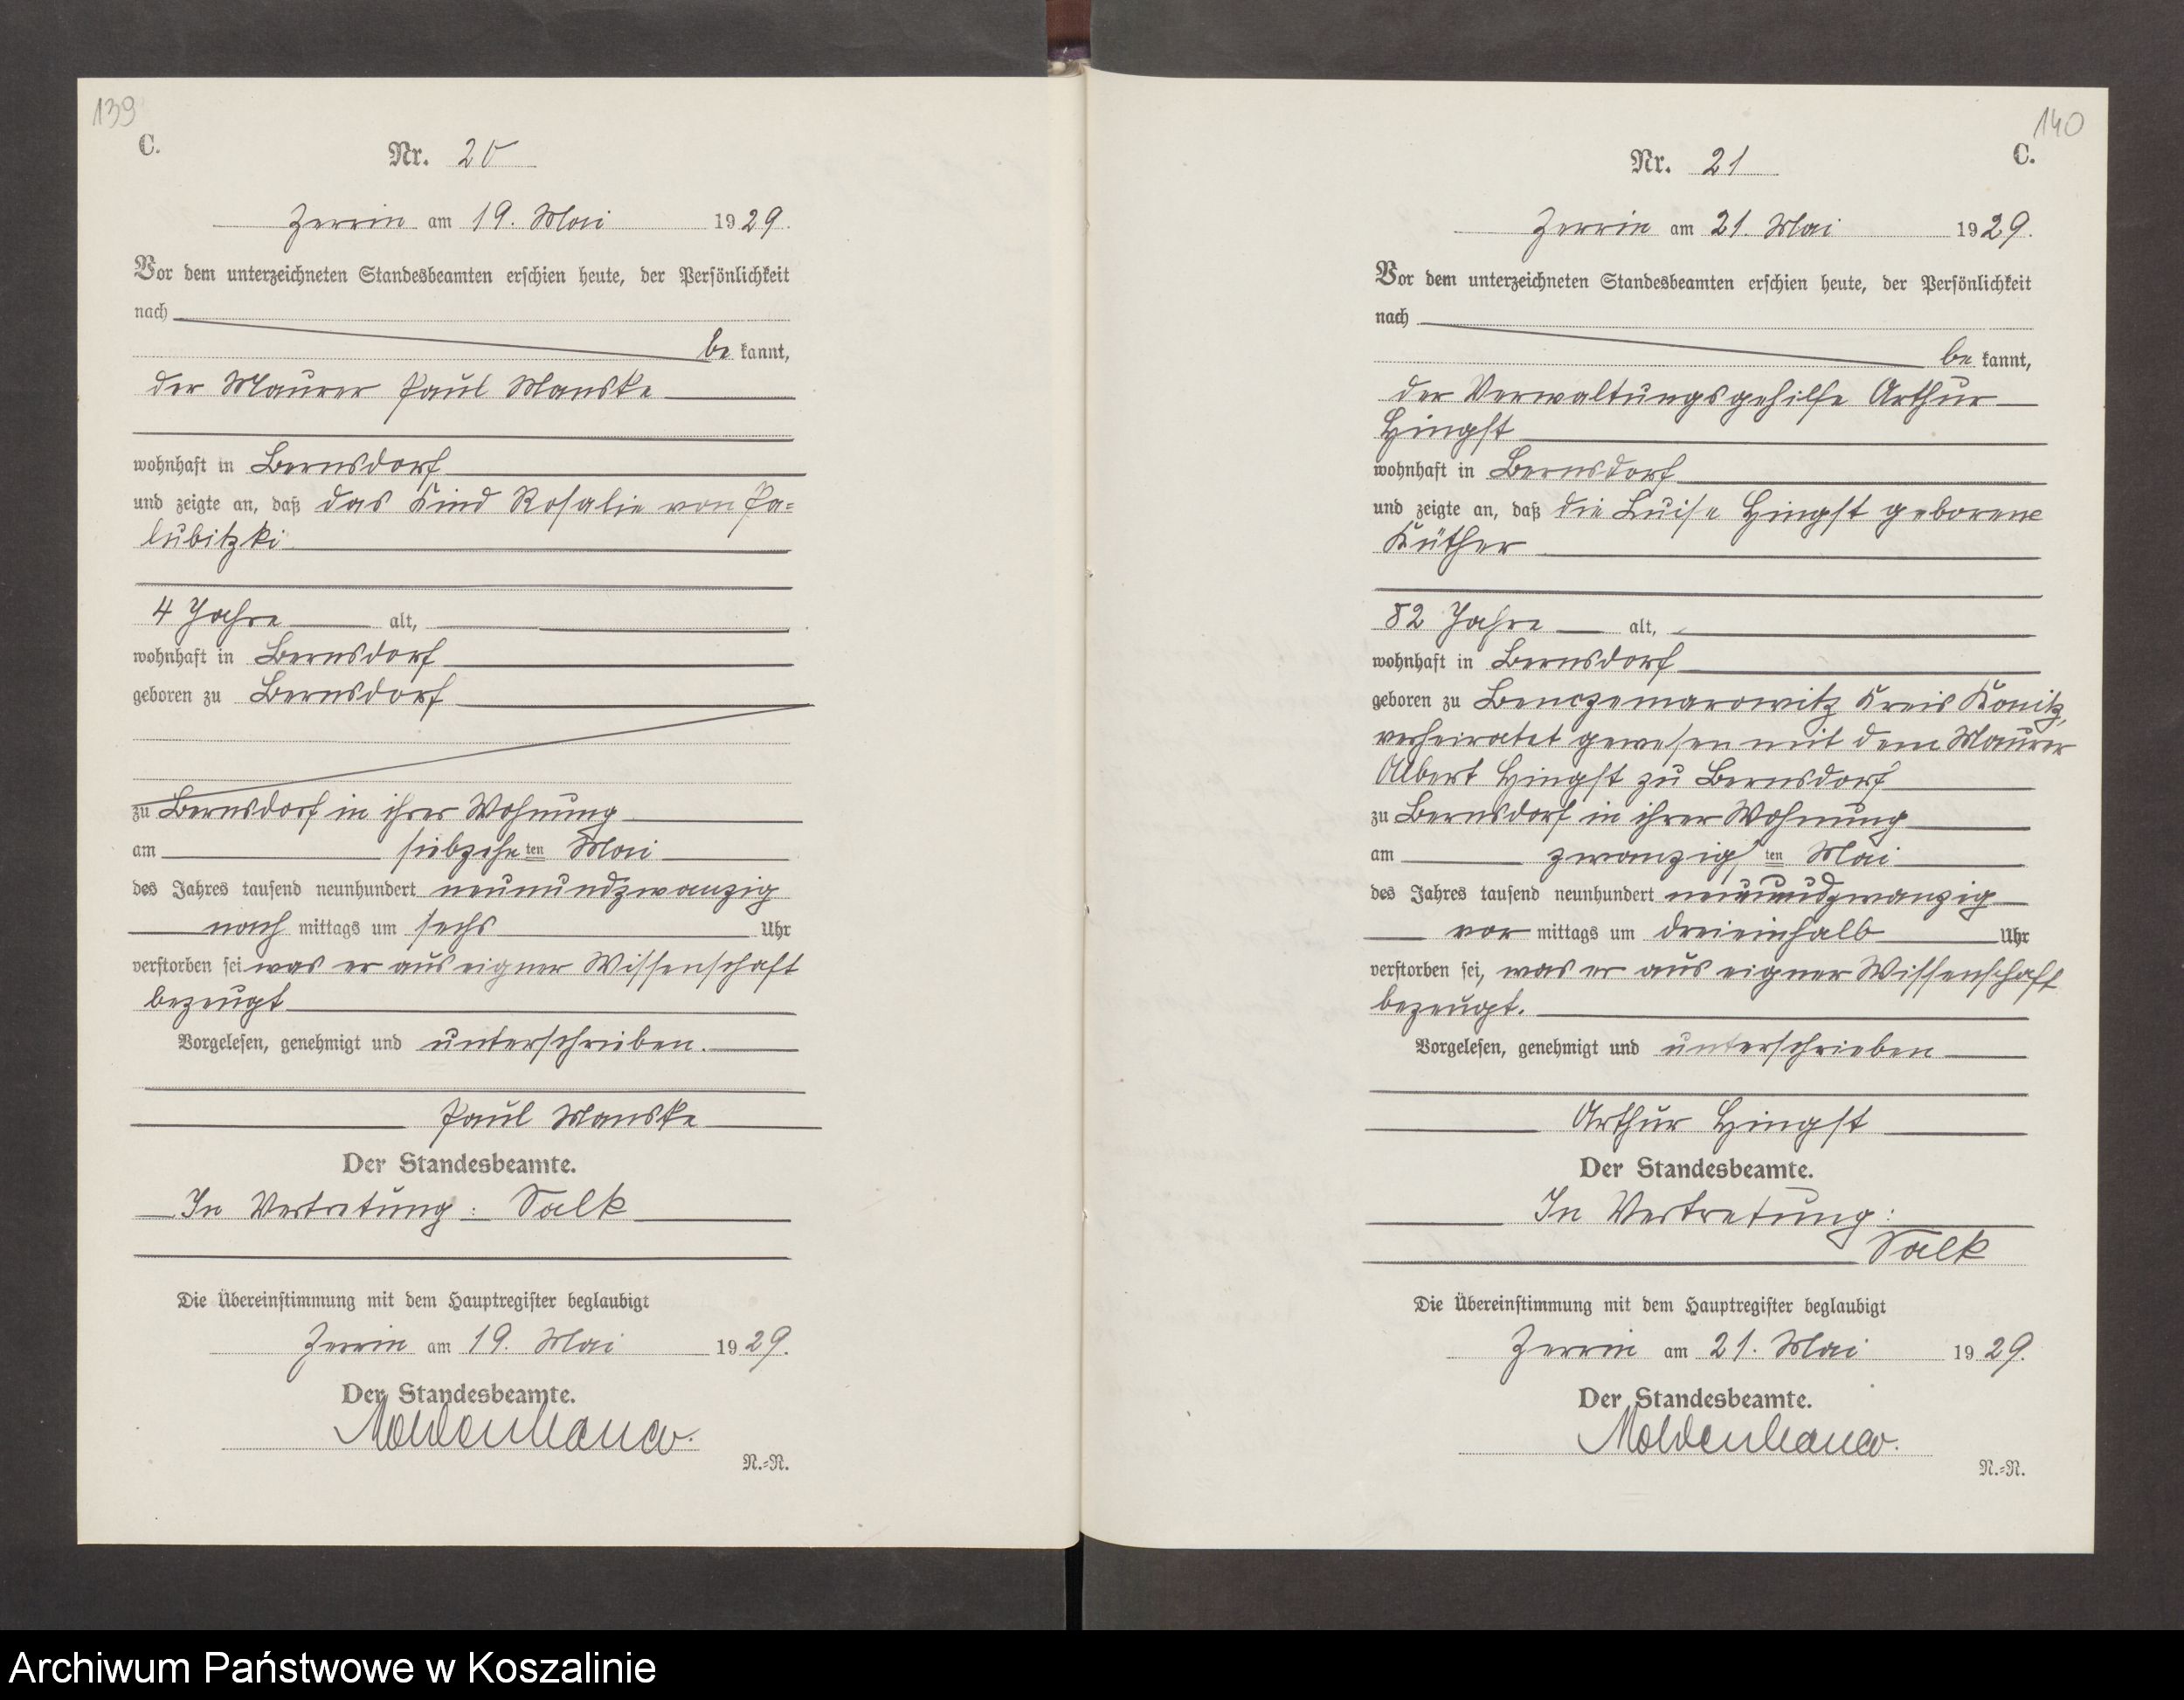 139
C.
Nr. 20
Zerrin am 19. Mai 1929.
Vor dem unterzeichneten Standesbeamten erschien heute, der Persönlichkeit
nach
be kannt,
der Maurer Paul Manske
wohnhaft in Bernsdorf
und zeigte an, daß das Kind Rosalie von Pa=
lubitzki
4 Jahre alt,
wohnhaft in Bernsdorf
geboren zu Bernsdorf
zu Bernsdorf in ihrer Wohnung
am siebzehnten Mai
des Jahres tausend neunhundert neunundzwanzig
nach mittags um sechs Uhr
verstorben sei was er aus eigner Wissenschaft
bezeugt
Vorgelesen, genehmigt und unterschrieben.
Paul Manske
Der Standesbeamte.
In Vertretung: Salk
Die Übereinstimmung mit dem Hauptregister beglaubigt
Zerrin am 19. Mai 1929.
Der Standesbeamte.
Moldenhauer.
N.=N.
140
C.
Nr. 21
Zerrin am 21. Mai 1929.
Vor dem unterzeichneten Standesbeamten erschien heute, der Persönlichkeit
nach
be kannt,
der Verwaltungsgehilfe Arthur
Hingst
wohnhaft in Bernsdorf
und zeigte an, daß die Luise Hingst geborene
Küther
82 Jahre alt,
wohnhaft in Bernsdorf
geboren zu Kreis Konitz,
verheiratet gewesen mit dem Maurer
Albert Hingst zu Bernsdorf
zu Bernsdorf in ihrer Wohnung
am zwanzigsten Mai
des Jahres tausend neunhundert neunundzwanzig
vor mittags um dreieinhalb Uhr
verstorben sei, was er aus eigner Wissenschaft
bezeugt.
Vorgelesen, genehmigt und unterschrieben
Arthur Hingst
Der Standesbeamte.
In Vertretung:
Salk
Die Übereinstimmung mit dem Hauptregister beglaubigt
Zerrin am 21. Mai 1929.
Der Standesbeamte.
Moldenhauer.
N.=N.
Archiwum Państwowe w Koszalinie